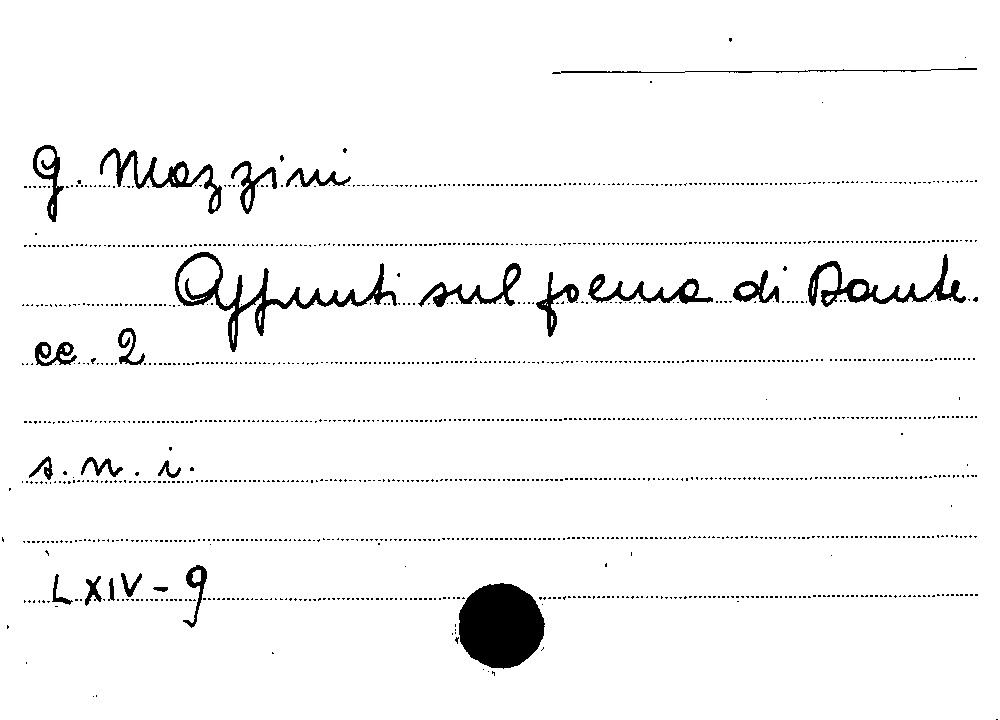 G. Mazzini
Appunti sul poema di Dante.
cc. 2
s. n. i.
LXIV - 9